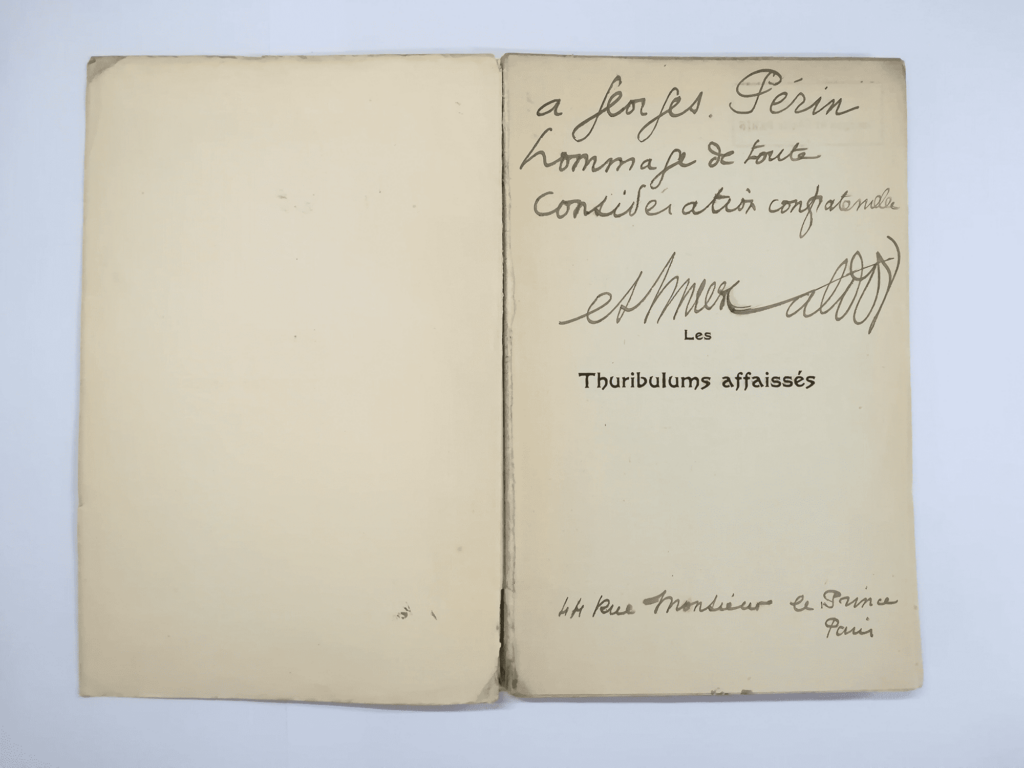 a georges. Périn
hommage de toute
considération confraternelle
eshmer-valdor
Les
Thuribulums affaissés
44 Rue Monsieur le Prince
Paris